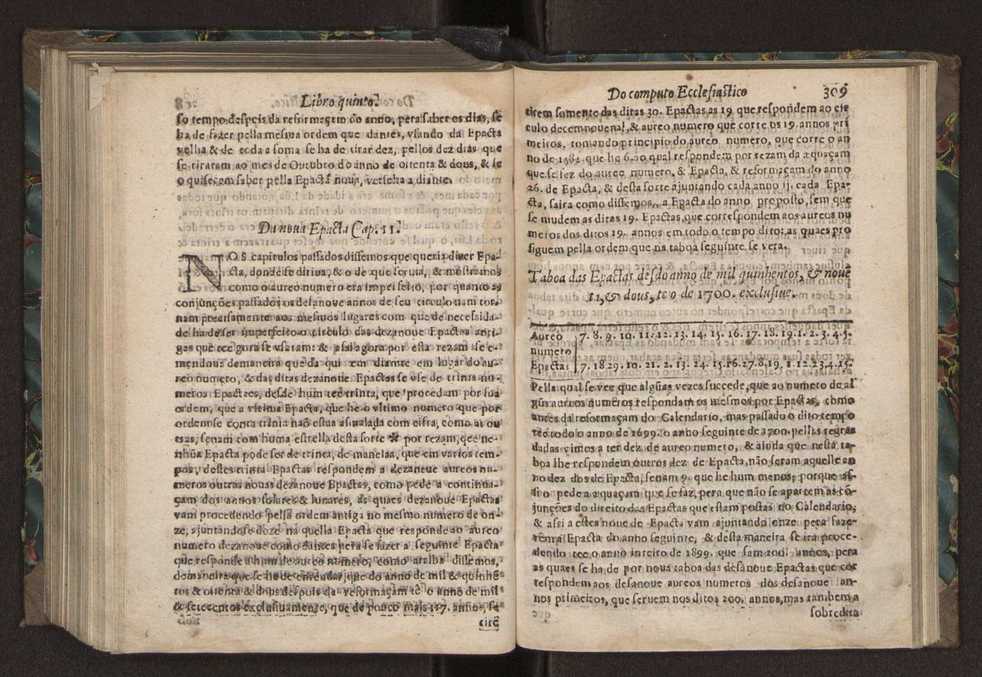 Libro quinto.
so tempo despois da reformaçem do anno, pera saber os dias, se
ha de fazer pella mesma ordem que dantes, vsando da Epacta
velha & de toda a soma se ha de tirar dez, pellos dez dias que
se tiraram ao mes de Outubro do anno de oitenta & dous, & se
o quiserem saber pella Epacta noua, verseha a diante.
Da noua Epacta Cap. 11.
NOS capitulos passados dissemos que queria dizer Epa-
cta, donde se diriua, & o de que seruia, & mostramos
como o aureo numero era imperfeito, por quanto as
conjunções passados os desanoue annos de seu circulo nam tor-
nam precisamente aos mesmos lugares com que de necessida-
de ha de ser imperfeito o circulo das dezanoue Epactas anti-
gas que tee gora se vsaram: & assi agora por esta rezam se e-
mendou: de maneira que da qui em diante em lugar do au-
reo numero, & das ditas dezanoue Epactas se vse de trinta nu-
meros Epactaes, desde hum tee trinta, que procedam por sua
ordem, que a vltima Epacta, que he o vltimo numero que por
ordem se conta trinta não estua assinalada com cifra, como as ou
tras, senam com huma estrella desta sorte * por rezam, que ne-
nhũa Epacta pode ser de trinta, de maneira, que em varios tem-
pos, destes trinta Epactas respondem a dezanoue aureos nu-
meros outras nouas dezanoue Epactas, como pede a continua-
çam dos annos solares & lunares, as quaes dezanoue Epactas
vam procedendo pella ordem antiga no mesmo numero de on-
ze, ajuntandose deze na quella Epacta que responde ao aureo
numero dezanoue como dantes pera se fazer a seguinte Epacta
que responde a hum de aureo numero, como atraiba dissemos,
de maneira que se ha de entender, que do anno de mil & quinhẽ
tos & oitenta & dous despois da reformaçam tè o anno de mil
& setecentos exclusiuamente, que de pouco mais 117. annos, se
cirẽ
Do computo Ecclesiastico 309
tirem somente das ditas 30. Epactas as 19 que respondem ao cir
culo decemnouenal, & aureo numero que corre os 19. annos pri
meiros, tomando principio do aureo numero, que corre o an
no de 1582. que he 6. ao qual respondem por rezam da æquaçam
que se fez do aureo numero, & Epacta, & reformaçam do anno
26. de Epacta, & desta sorte ajuntando cada anno 11. cada Epa-
cta, saira como dissemos, a Epacta do anno proposto, sem que
se mudem as ditas 19. Epactas, que correspondem aos aureos nu
meros dos ditos 19. annos em todo o tempo dito; as quaes pro
siguem pella ordem que na taboa seguinte se vera.
Taboa das Epactas desdo anno de mil quinhentos, & noue
11, & dous, te o de 1700. exclusiue.
Aureo numero | 7. 8. 9. 10. 11. 12. 13. 14. 15. 16. 17. 18. 19. 1. 2. 3. 4. 5.
Epacta: | 7. 18 29. 10. 21. 2. 13. 24. 5. 16. 27. 8. 19. 1. 12. 23. 4. 15.
Pella qual se vee que algũas vezes succede, que ao numero de al
gũs aureos numeros respondam os mesmos por Epactas, como
antes da reformaçam do Calendario, mas passado o dito tempo
tèe todo o anno de 1699. o anno seguinte de 1700. pellas regras
dadas vimos a ter dez de aureo numero, & ainda que nesta ta-
boa lhe respondem outros dez de Epacta, não seram aquelle an
no dez dos de Epacta, senam 9. que he hum menos, porque as-
si o pede a æquaçam que se faz, pera que não se apartem as cõ-
junções do direito das Epactas que estam postas no Calendario,
& assi a estes noue de Epacta vam ajuntando onze pera faze-
rem a Epacta do anno seguinte, & desta maneira se ira proce-
dendo tee o anno inteiro de 1899. que sam 200. annos, pera
as quaes se ha de por noua taboa das desanoue Epactas que cor
respondem aos desanoue aureos numeros dos desanoue an-
nos primeiros, que seruem nos ditos 200. annos, mas tambem a
sobredita